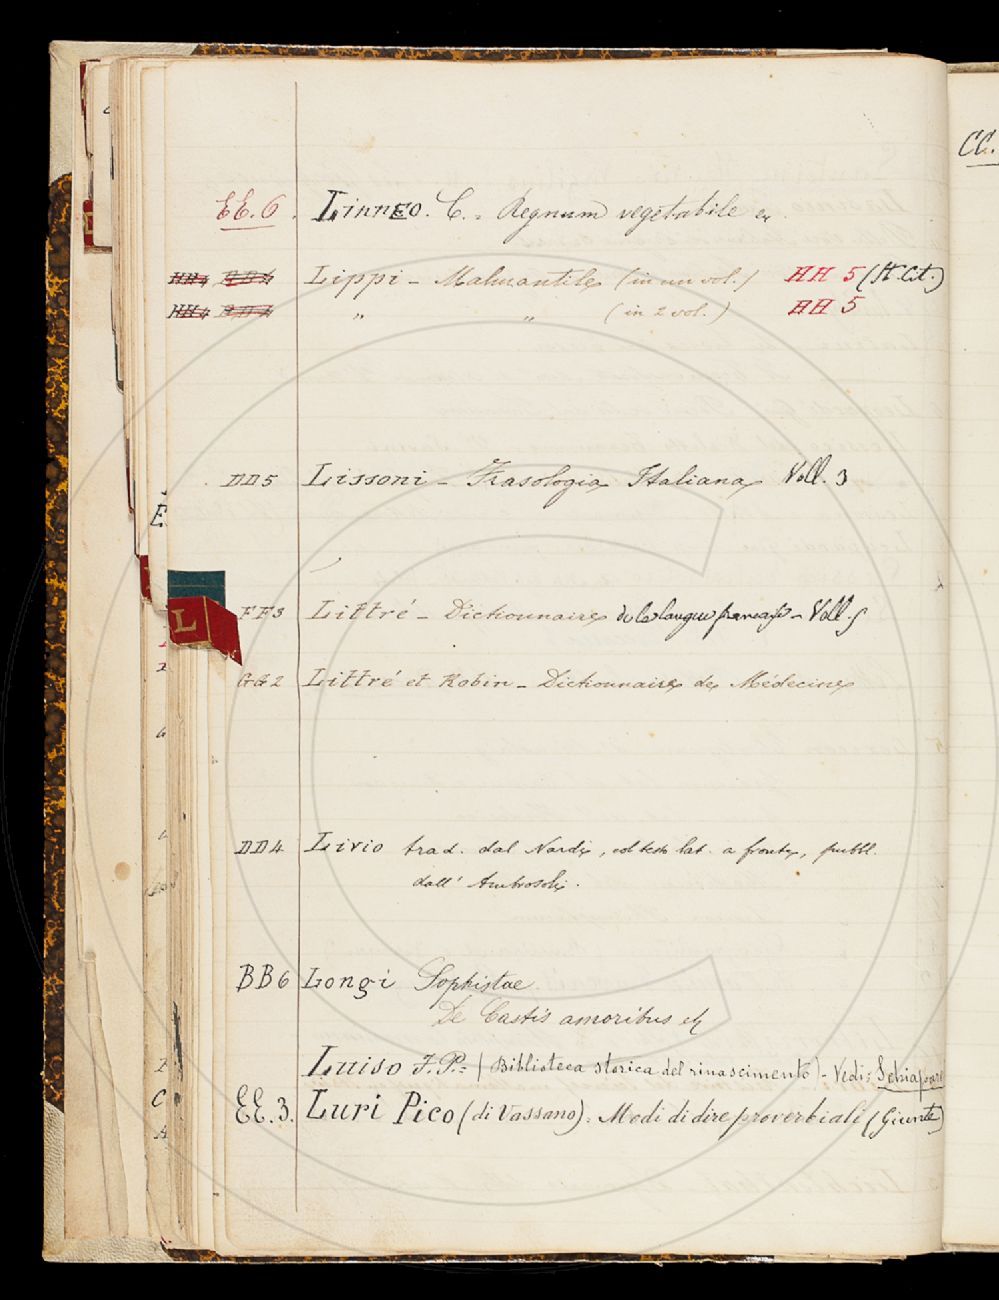 CC.
EE. 6. Linneo. C. = Regnum vegetabile
HH4 DD4 Lippi - Malmantile (in un vol.) HH 5 (St. Cit.)
HH4 DD4 „ „ (in 2 vol.) HH 5
DD5 Lissoni - Frasologia Italiana Voll. 3
E.
FF3 Littré - Dictionnaire de la langue française - Voll. 5
L
GG2 Littré et Robin - Dictionnaire de Médecine
DD4 Livio trad. dal Nardi, col testo lat. a fronte, pubbl.
dall' Ambrosoli.
BB6 Longi Sophistae
De Castis amoribus
Luiso F. P. = (Biblioteca storica del rinascimento) - Vedi:
C
EE. 3. Luri Pico (di Vassano). Modi di dire proverbiali (Giunte)
A